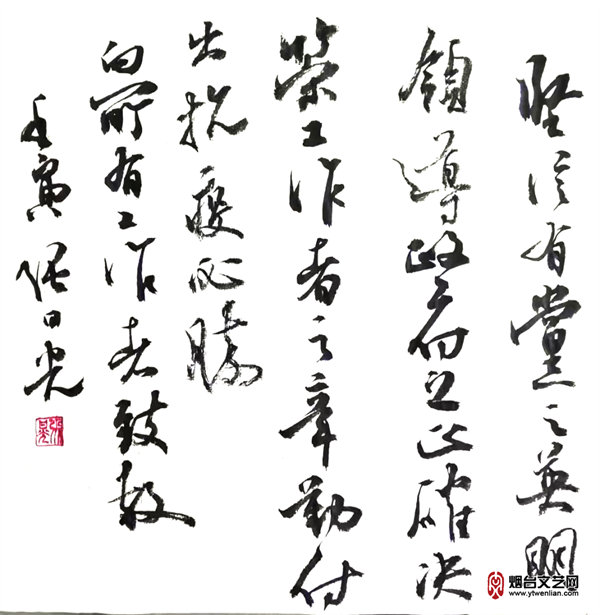 堅信有黨之英明
領導政府之正確决
策工作者之辛勤付
出抗疫必勝
向所有工作者致敬
壬寅張日光
烟台文艺网
www.ytwenlian.com